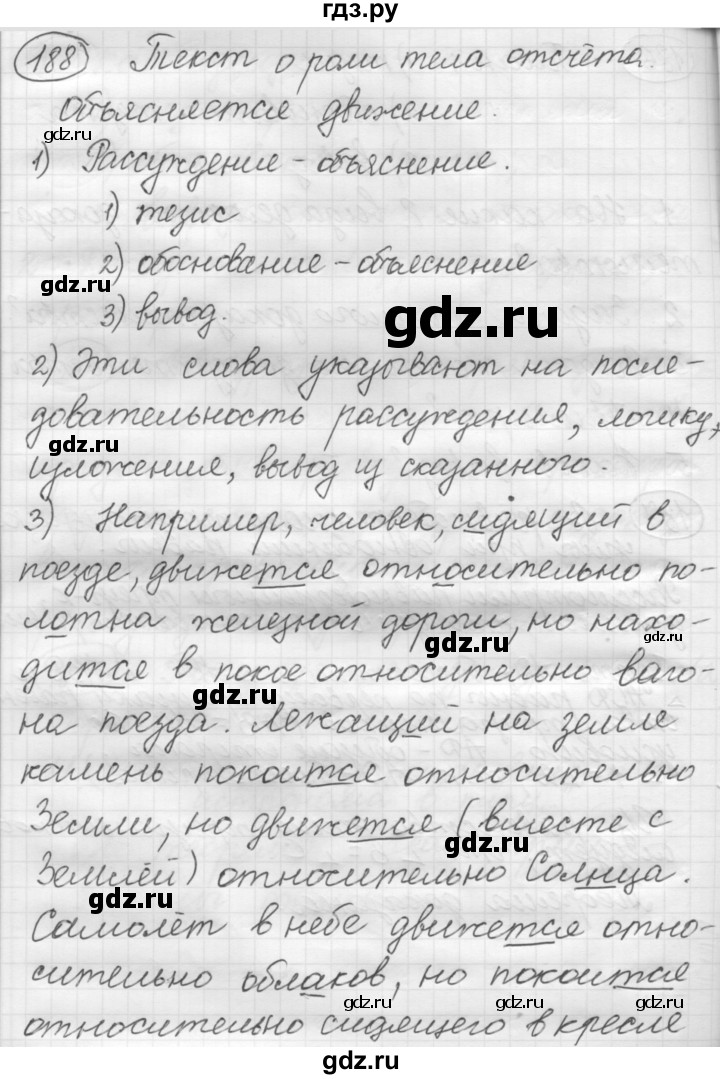 гдз.ру
188 Текст о роли тела отсчёта.
Объясняется движение.
gdz.ru
gdz.ru
1) Рассуждение – объяснение.
1) тезис
2) обоснование – объяснение
gdz.ru
3) вывод.
gdz.ru
2) Эти слова указывают на после-
довательность рассуждения, логику
gdz.ru
изложения, вывод из сказанного.
gdz.ru
3) Например, человек, сидящий в
поезде, движется относительно по-
лотна железной дороги, но нахо-
gdz.ru
gdz.ru
дится в покое относительно ваго-
gdz.ru
на поезда. Лежащий на земле
камень покоится относительно
Земли, но движется (вместе с
gdz.ru
Землёй) относительно Солнца.
gdz.ru
Самолёт в небе движется отно-
сительно облаков, но покоится
gdz.ru
gdz.ru
gdz.ru
относительно сидящего в кресле
gdz.ru